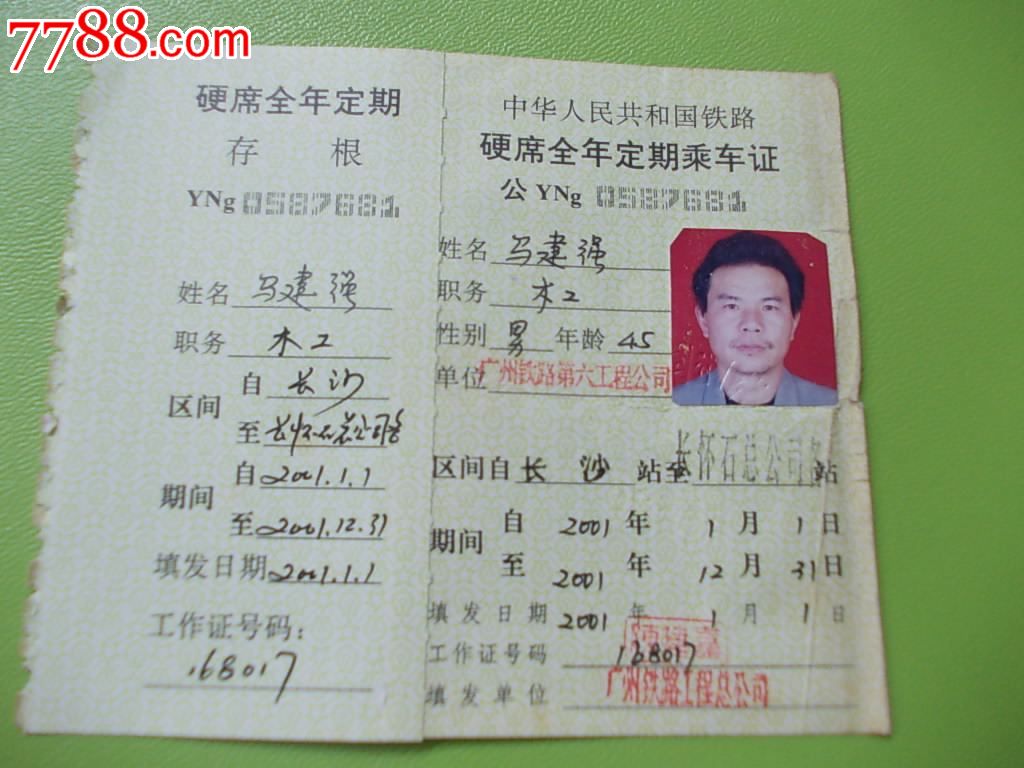 7788.com
硬席全年定期
存 根
YNg 0587681
姓名 马建强
职务 木工
区间 自 长沙
至 长怀石总公司管
期间 自 2001.1.1
至 2001.12.31
填发日期 2001.1.1
工作证号码：
168017
中华人民共和国铁路
硬席全年定期乘车证
公 YNg 0587681
姓名 马建强
职务 木工
性别 男 年龄 45
单位 广州铁路第六工程公司
区间自 长沙 站至 长怀石总公司管 站
期间 自 2001 年 1 月 1 日
至 2001 年 12 月 31 日
填发日期 2001 年 1 月 1 日
工作证号码 168017
填发单位 广州铁路工程总公司